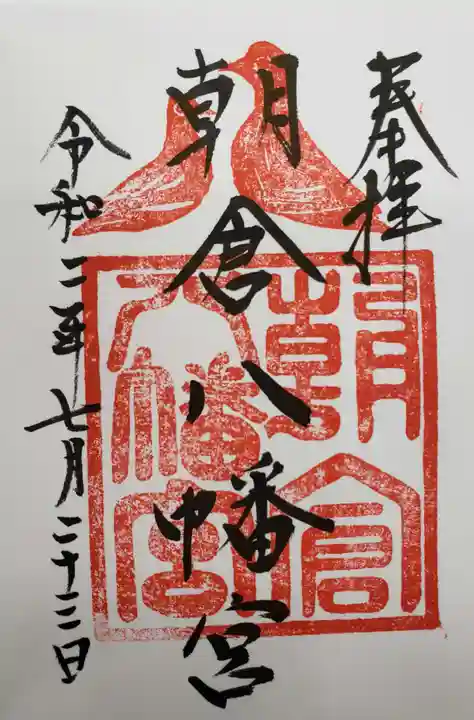 奉拝
朝倉八幡宮
朝倉八幡宮
令和二年七月二十三日